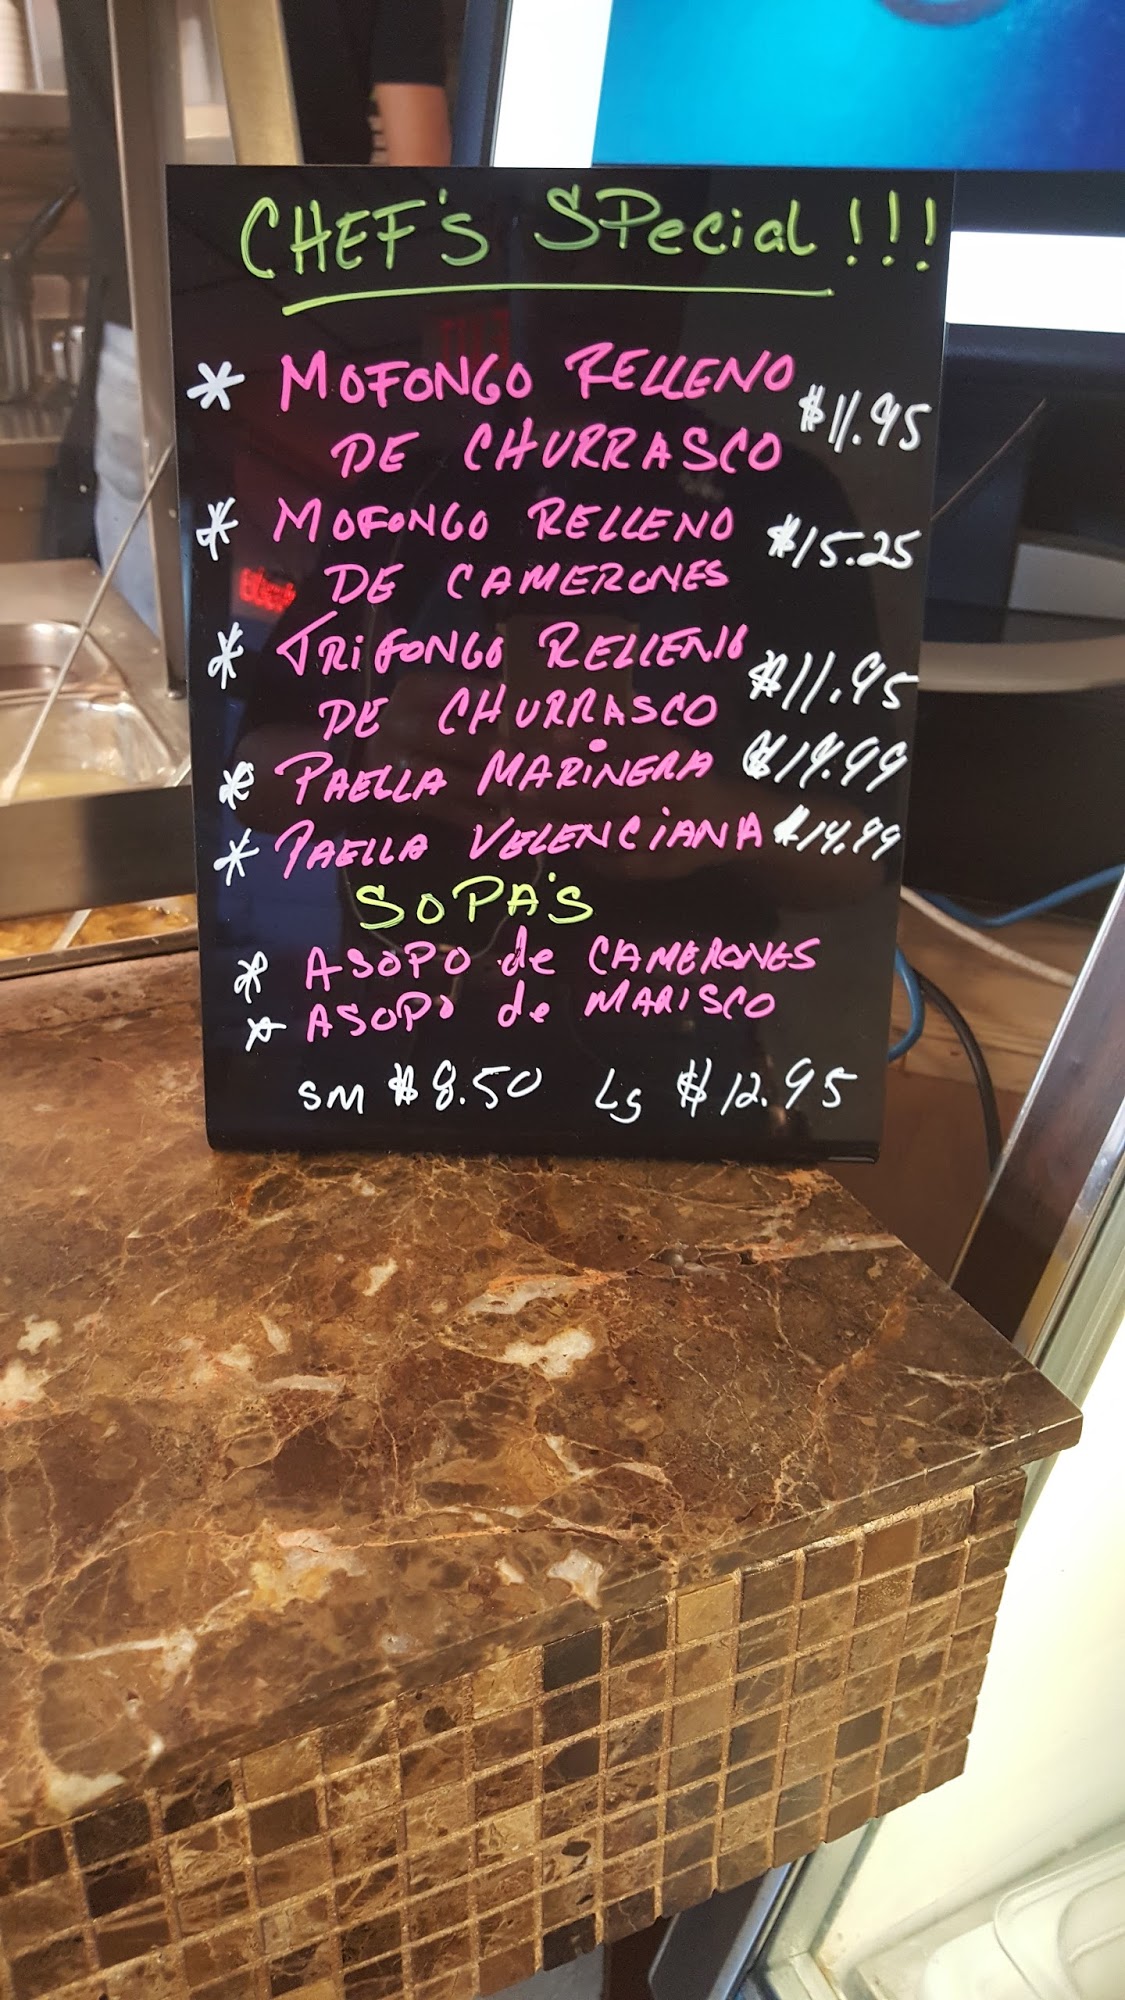 CHEF'S SPecial !!!
* MOFONGO RELLENO $11.95
DE CHURRASCO
* MOFONGO RELLENO $15.25
DE CAMERONES
* TRiFONGO RELLENO $11.95
DE CHURRASCO
* PAELLA MARINERA $19.99
* PAELLA VELENCiANA $14.99
SOPA'S
* ASOPO de CAMERONES
* ASOPO de MARISCO
SM $8.50 Lg $12.95